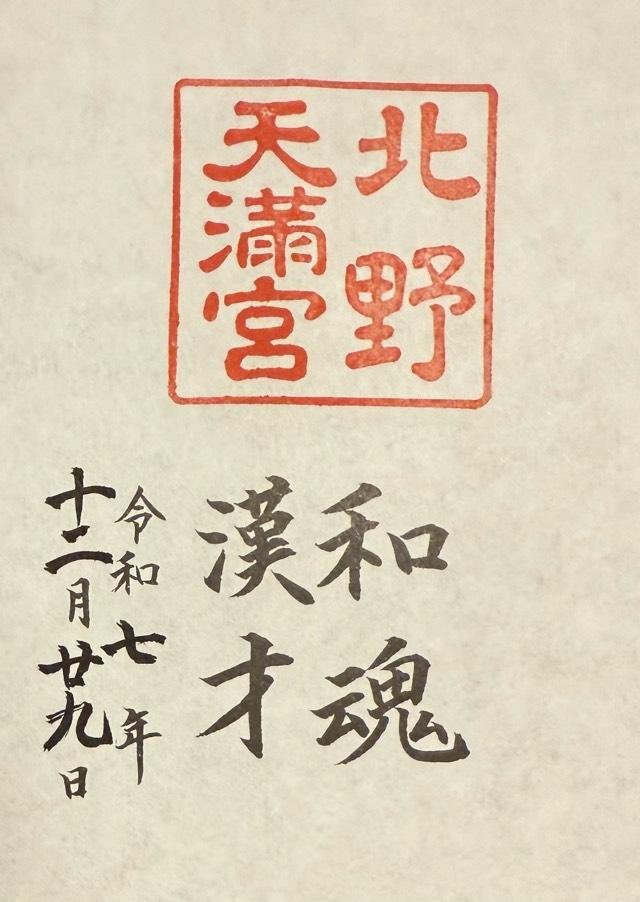 北野
天満宮
和魂
漢才
令和七年
十二月廿九日